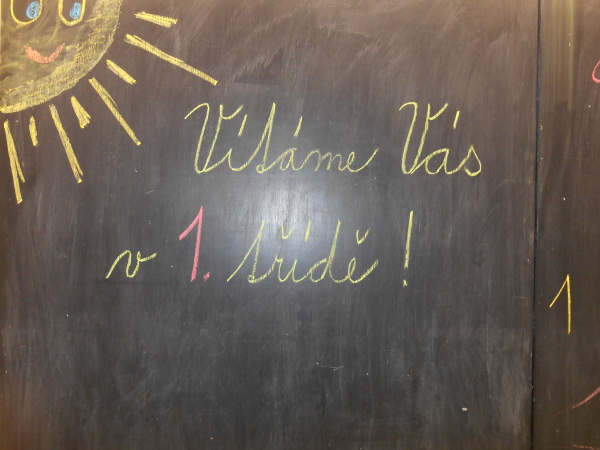 Vítáme Vás
v 1. třídě!
1